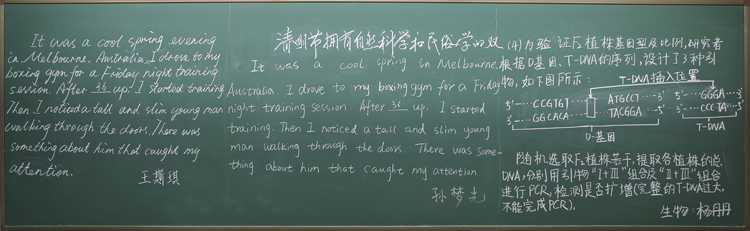 It was a cool spring evening
in Melbourne, Australia. I drove to my
boxing gym for a Friday night training
session. After 36 up. I started training.
Then I noticed a tall and slim young man
walking through the doors. There was
something about him that caught my
attention.
王斯琪
清明节拥有自然科学和民俗学的双
It was a cool spring in Melbourne
Australia. I drove to my boxing gym for a Friday
night training session. After 36 up. I started
training. Then I noticed a tall and slim young
man walking through the doors. There was some-
thing about him that caught my attention.
孙梦
(4)为验证F₂植株基因型及比例,研究者
根据D基因、T-DNA的序列,设计了3种引
物,如下图所示:
T-DNA插入位置
5'—CCGTGT ATGCCT—3' 5'—GGGA—3'
3'—GGCACA TACGGA—5' 3'—CCCTA—5'
D-基因
T-DNA
随机选取F₂植株若干,提取各植株的总
DNA,分别用引物“Ⅰ+Ⅲ”组合及“Ⅱ+Ⅲ”组合
进行PCR,检测是否扩增(完整的T-DNA过大,
不能完成PCR)。
生物:杨丹丹